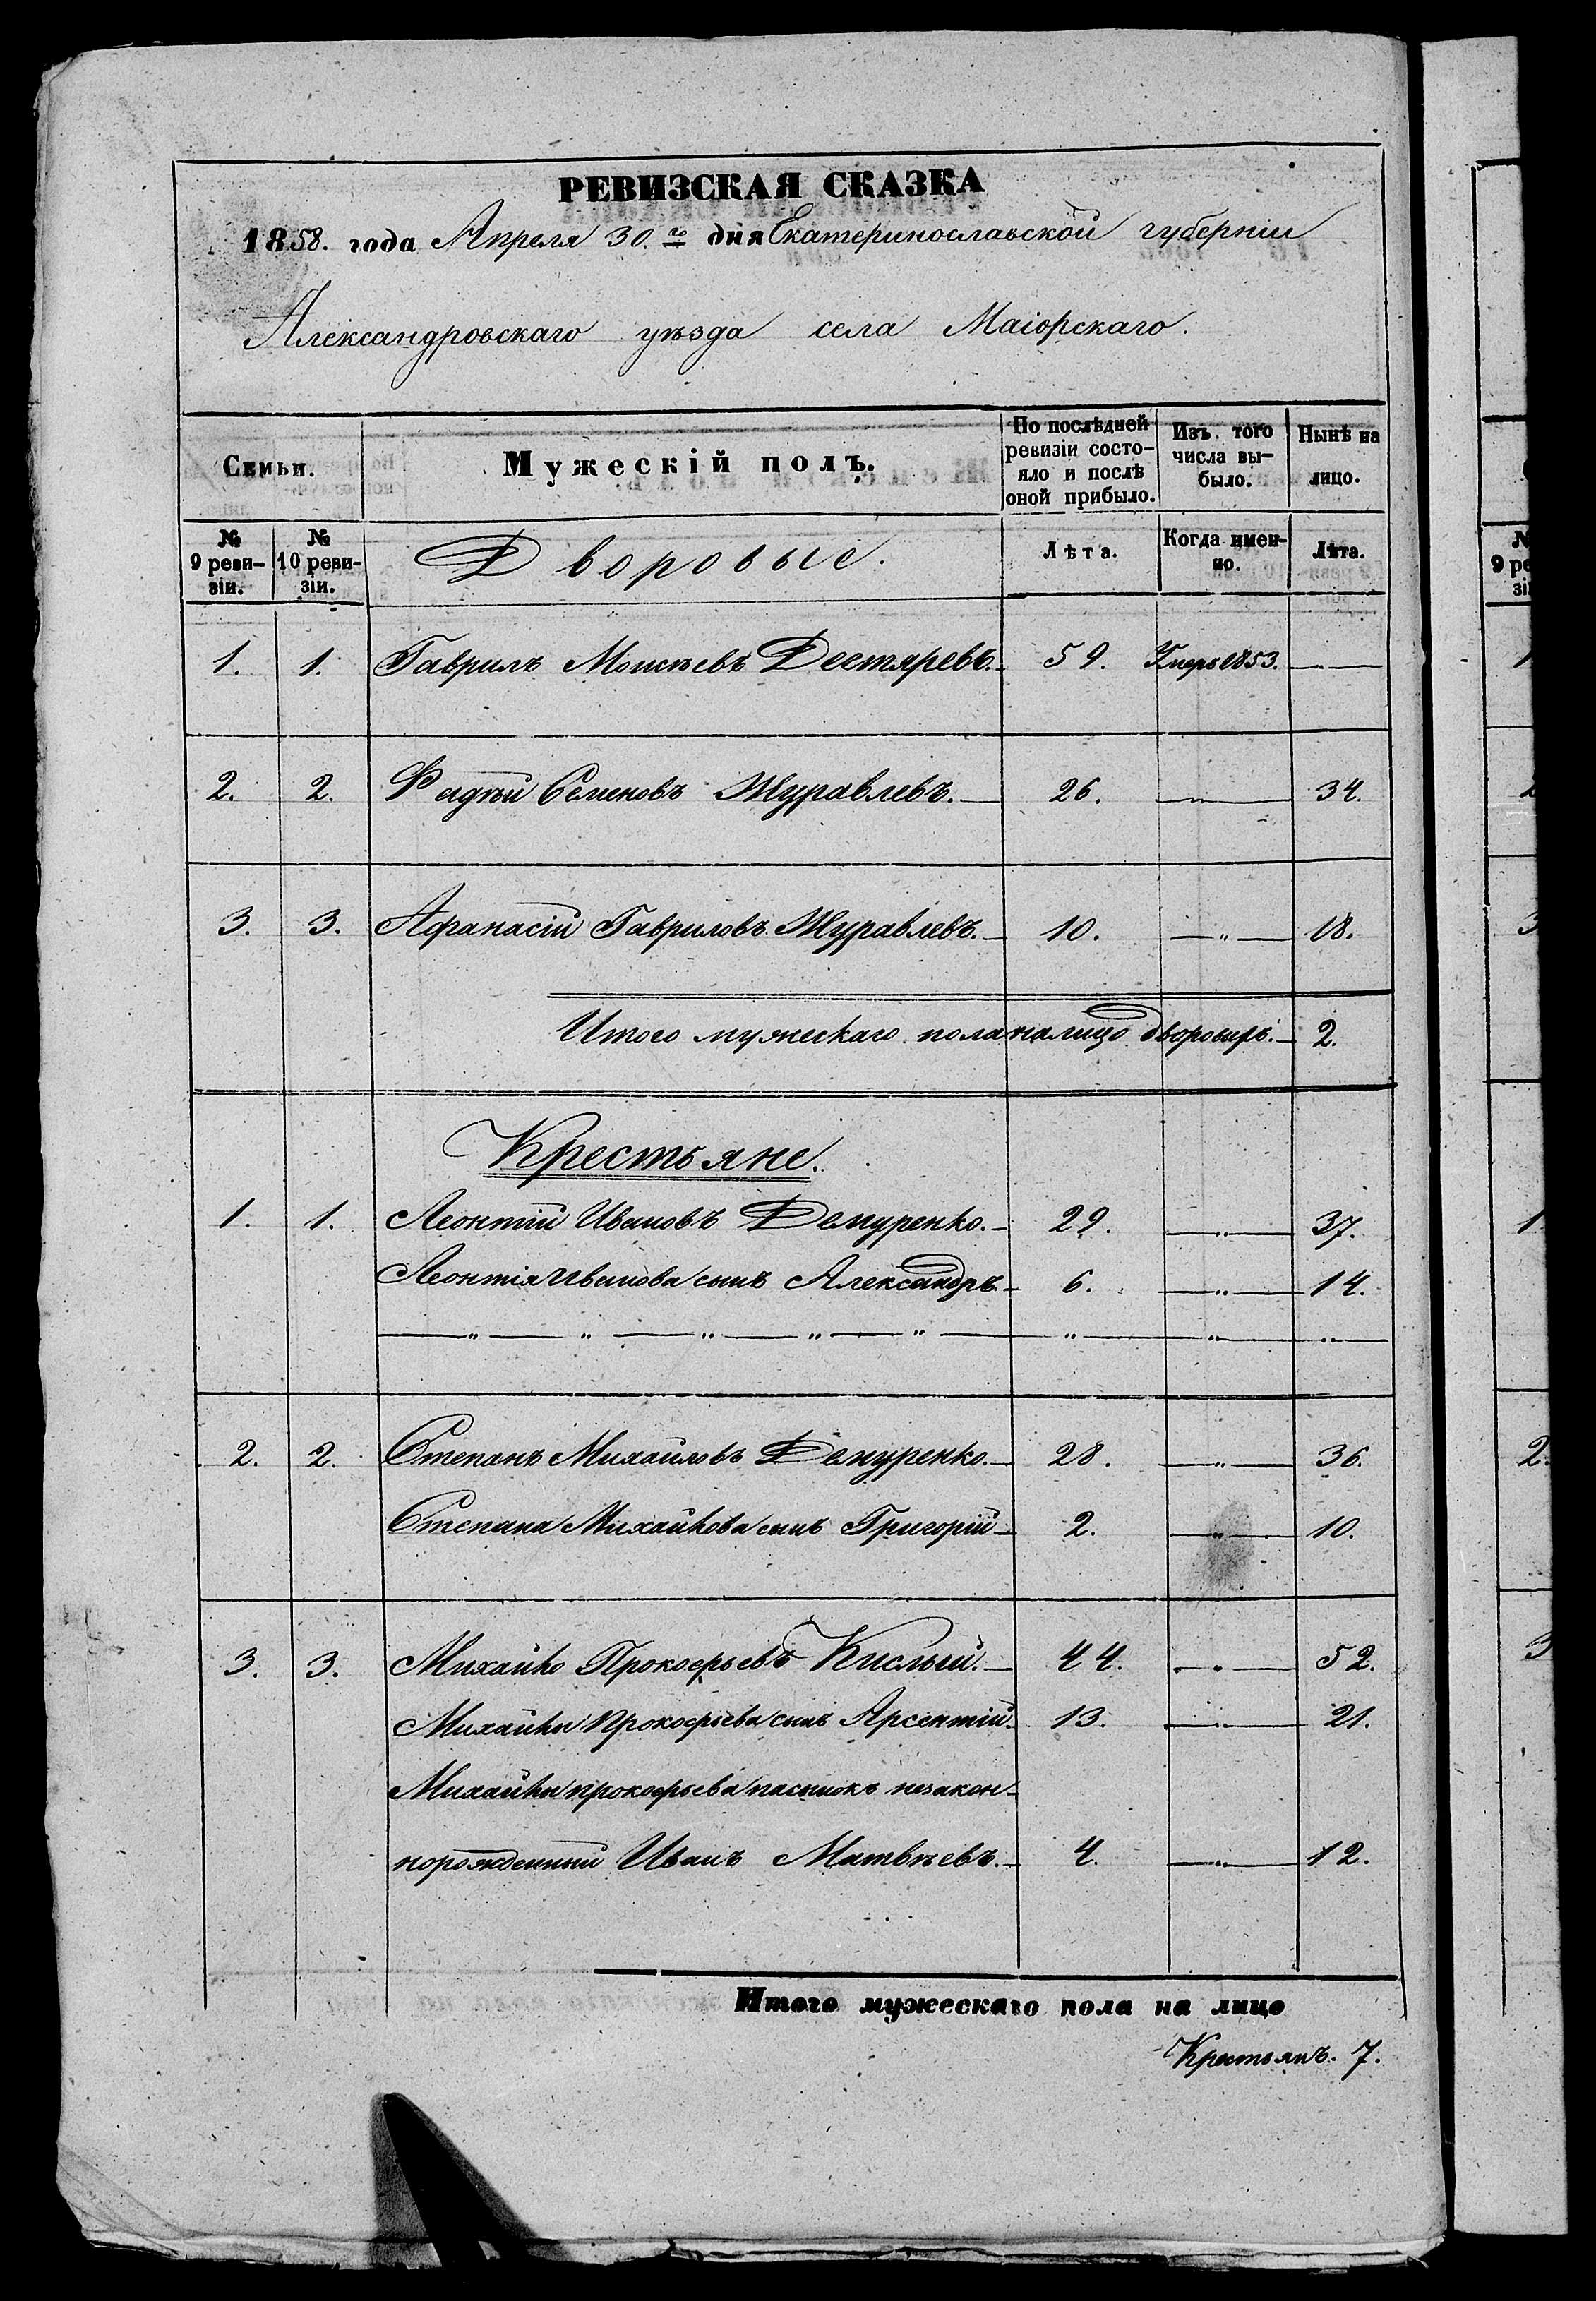 РЕВИЗСКАЯ СКАЗКА
1858. года Апреля 30.го дня Екатеринославской губерніи
Александровскаго уѣзда села Маіорскаго.
Семьи.
Мужескій полъ.
По послѣдней ревизіи состояло и послѣ оной прибыло.
Изъ того числа выбыло.
Нынѣ на лицо.
№ 9 ревизіи.
№ 10 ревизіи.
Дворовые.
Лѣта.
Когда именно.
Лѣта.
1. 1. Гаврилъ Моисѣевъ Дегтяревъ. 59. Умеръ 1853. — „ —
2. 2. Фадѣй Семеновъ Журавлевъ. 26. — „ — 34.
3. 3. Афанасій Гавриловъ Журавлевъ. 10. — „ — 18.
Итого мужескаго пола налицо дворовыхъ. 2.
Крестьяне.
1. 1. Леонтій Ивановъ Демуренко. 29. — „ — 37.
Леонтія Иванова сынъ Александръ. 6. — „ — 14.
— „ — „ — „ — „ — „ — „ — „ — „ —
2. 2. Степанъ Михайловъ Демуренко. 28. — „ — 36.
Степана Михайлова сынъ Григорій 2. — „ — 10.
3. 3. Михайло Прокофьевъ Кислый. 44. — „ — 52.
Михайлы Прокофьева сынъ Арсентій. 13. — „ — 21.
Михайлы Прокофьева пасынокъ незакон-
норожденный Иванъ Матвѣевъ. 4. — „ — 12.
Итого мужескаго пола на лицо
Крестьянъ. 7.